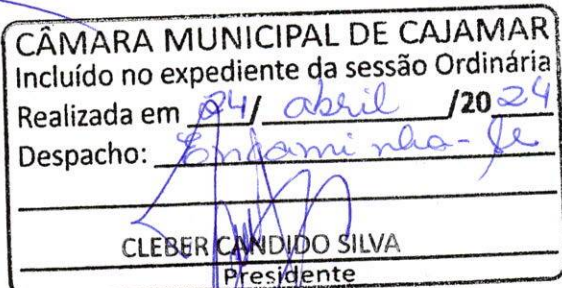 CÂMARA MUNICIPAL DE CAJAMAR
Incluído no expediente da sessão Ordinária
Realizada em 24/ abril /20 24
Despacho: Encaminha-se
CLEBER CANDIDO SILVA
Presidente